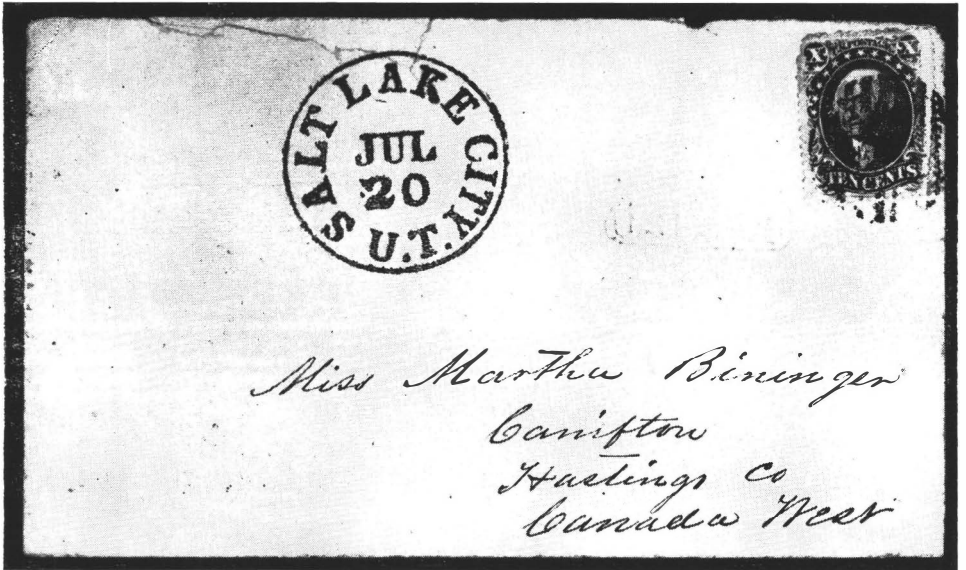 SALT LAKE CITY.
JUL
20
U.T.
X U.S. POSTAGE X
TEN CENTS
Miss Martha Bininger
Canifton
Hastings Co
Canada West